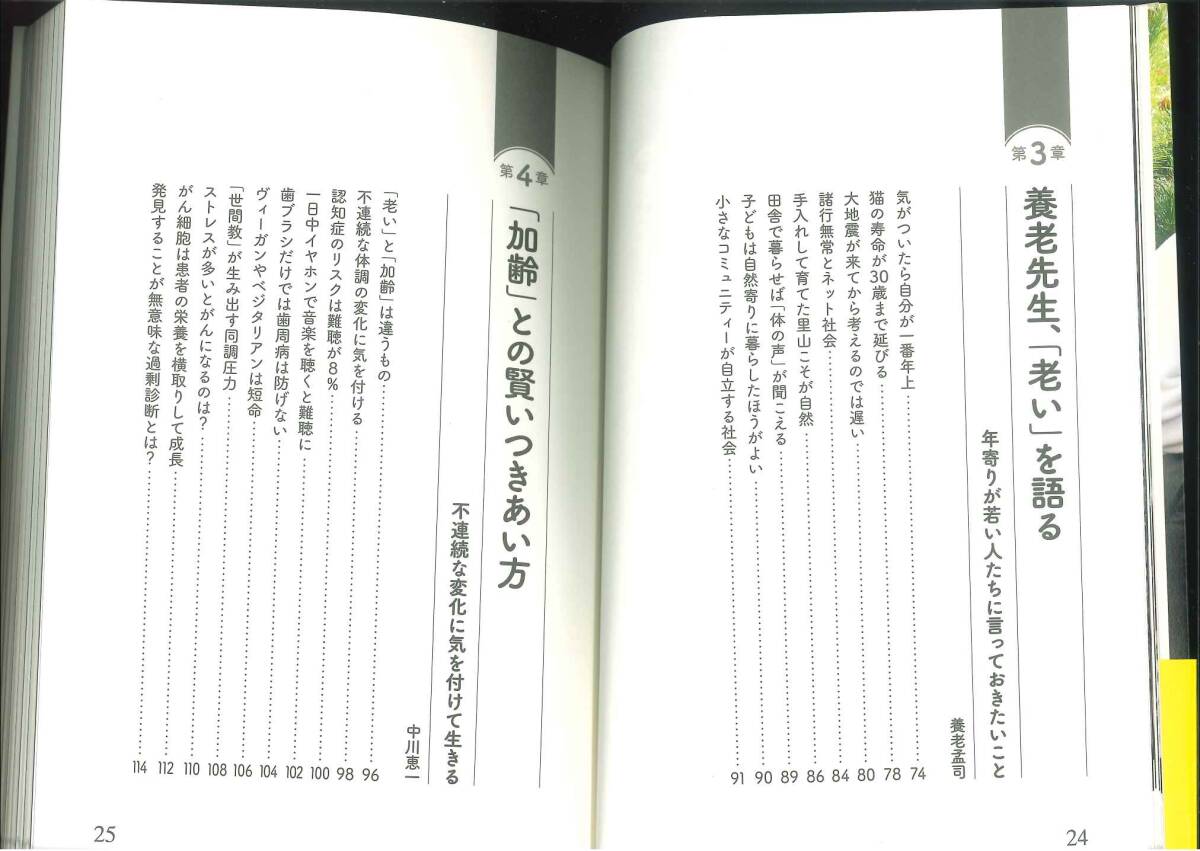 第3章
養老先生、「老い」を語る
年寄りが若い人たちに言っておきたいこと
養老孟司
気がついたら自分が一番年上……74
猫の寿命が30歳まで延びる……78
大地震が来てから考えるのでは遅い……80
諸行無常とネット社会……84
手入れして育てた里山こそが自然……86
田舎で暮らせば「体の声」が聞こえる……89
子どもは自然寄りに暮らしたほうがよい……90
小さなコミュニティーが自立する社会……91
24
第4章
「加齢」との賢いつきあい方
不連続な変化に気を付けて生きる
中川恵一
「老い」と「加齢」は違うもの……96
不連続な体調の変化に気を付ける……98
認知症のリスクは難聴が8%……100
一日中イヤホンで音楽を聴くと難聴に……102
歯ブラシだけでは歯周病は防げない……104
ヴィーガンやベジタリアンは短命……106
「世間教」が生み出す同調圧力……108
ストレスが多いとがんになるのは?……110
がん細胞は患者の栄養を横取りして成長……112
発見することが無意味な過剰診断とは?……114
25